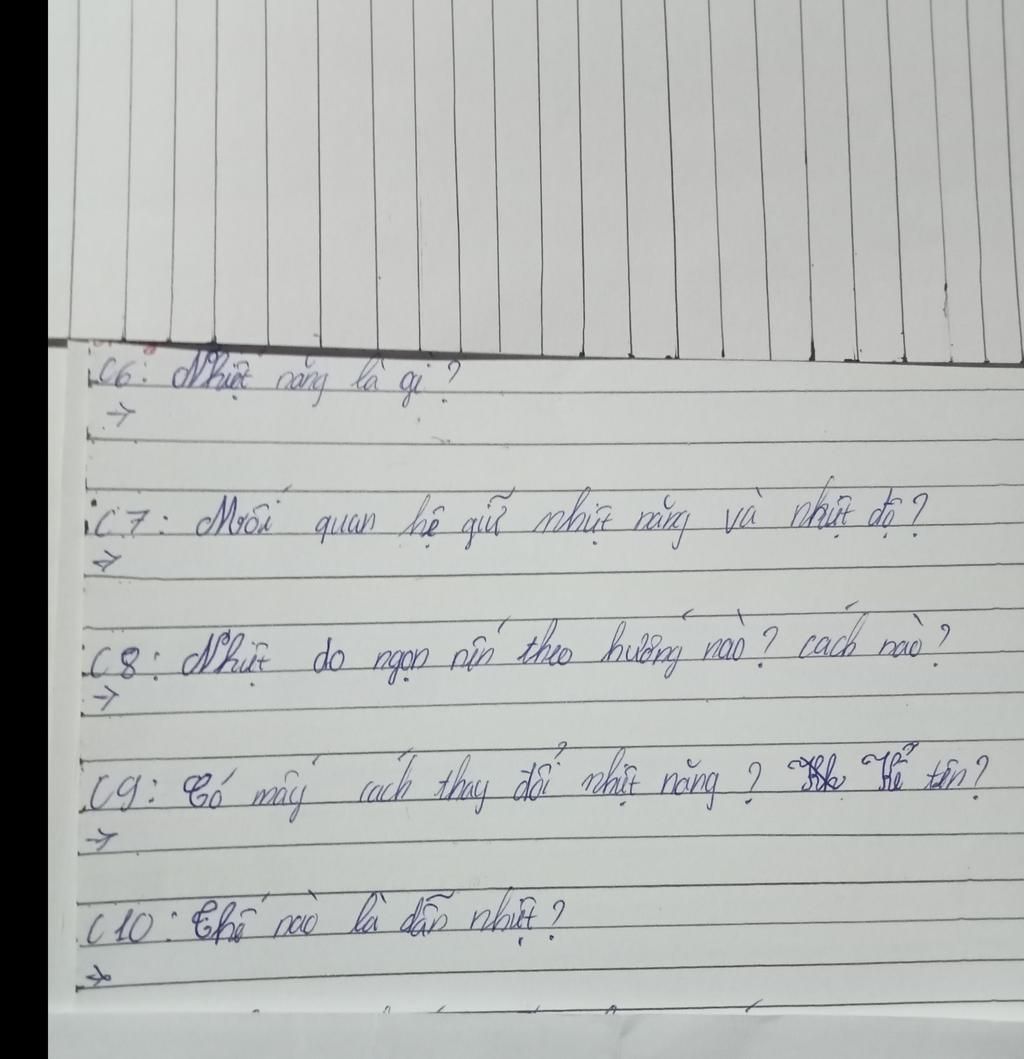 C6: Nhiệt năng là gì?
→
C7: Mối quan hệ giữ nhiệt năng và nhiệt độ?
→
C8: Nhiệt do ngọn nến theo hướng nào? cách nào?
→
C9: Có mấy cách thay đổi nhiệt năng? Kể tên?
→
C10: Thế nào là dẫn nhiệt?
→